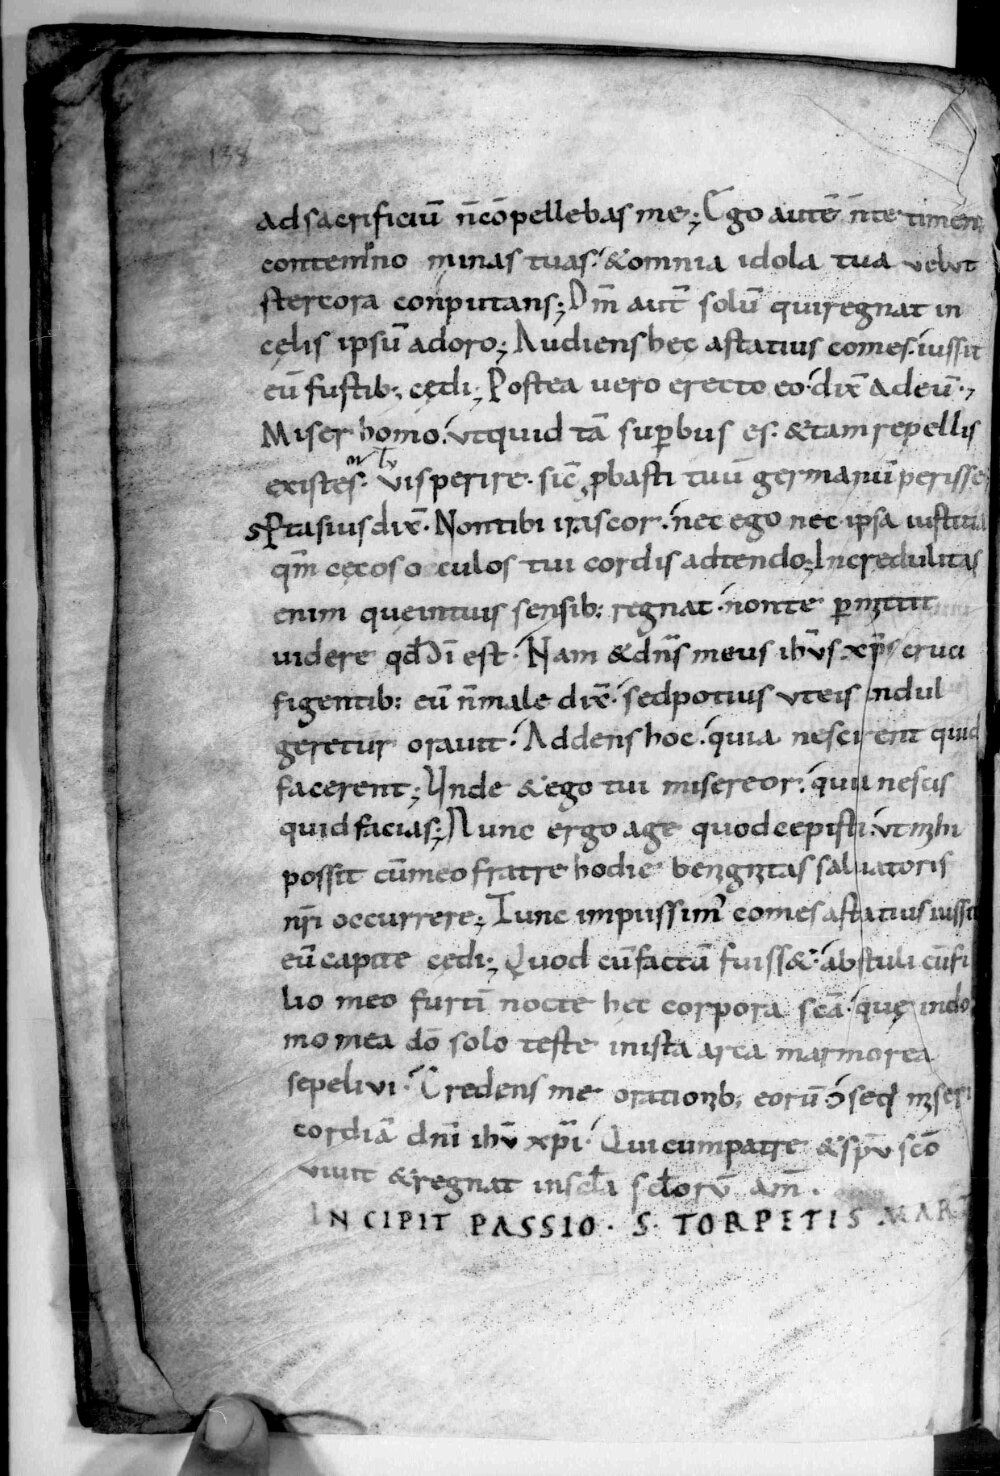 138
ad sacrificiū n̄ cōpellebas me; Ego autē n̄ te timens
contemno minas tuas. & omnia idola tua velut
stercora conputans; Dm̄ aut̄ solū qui regnat in
cęlis ipsū adoro; Audiens hec astatius comes. iussit
eū fustib; cędi; Postea vero erecto eo. dix̄ ad eū.
Miser homo. ut quid tā supbus es. & tam repellis
existes. vis perire. sic̄ p̱basti tuū germanū perisse
Sp̄tasius dix̄. Non tibi irascor. nec ego nec ipsa iustitia
qm̄ cęcos oculos tui cordis adtendo; Incredulitas
enim que in tuis sensib; regnat. non te pmittit
videre qd̄ dī est. Nam & dn̄s meus ih̄us xp̄s cruci
figentib; eū n̄ male dix̄. sed potius ut eis indul
geretur oravit. Addens hoc. quia nescirent quid
facerent; Unde & ego tui misereor. quia nescis
quid facias; Nunc ergo age quod cepisti. ut mihi
possit cū meo fratre hodie benignitas salvatoris
nr̄i occurrere; Tunc impiissim' comes astatius iussit
eū capite cędi; Quod cū factū fuiss&. abstuli cū fi
lio meo furtī nocte hec corpora scā. que in do
mo mea dō solo teste in ista arca marmorea
sepelivi. Credens me orationib; eorū ɔseq̄ miseri
cordiā dn̄i ih̄u xp̄i. Qui cum patre & sp̄u scō
vivit & regnat in scl̄a scl̄orū am̄.
INCIPIT PASSIO. S. TORPETIS MART